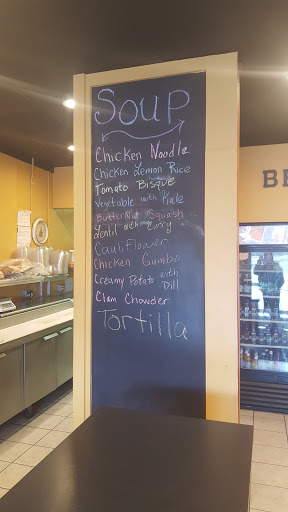 Soup
Chicken Noodle
Chicken Lemon Rice
Tomato Bisque
Vegetable with Kale
Butternut Squash
Lentil with Curry
Cauliflower
Chicken Gumbo
Creamy Potato with
Dill
Clam Chowder
Tortilla
BE